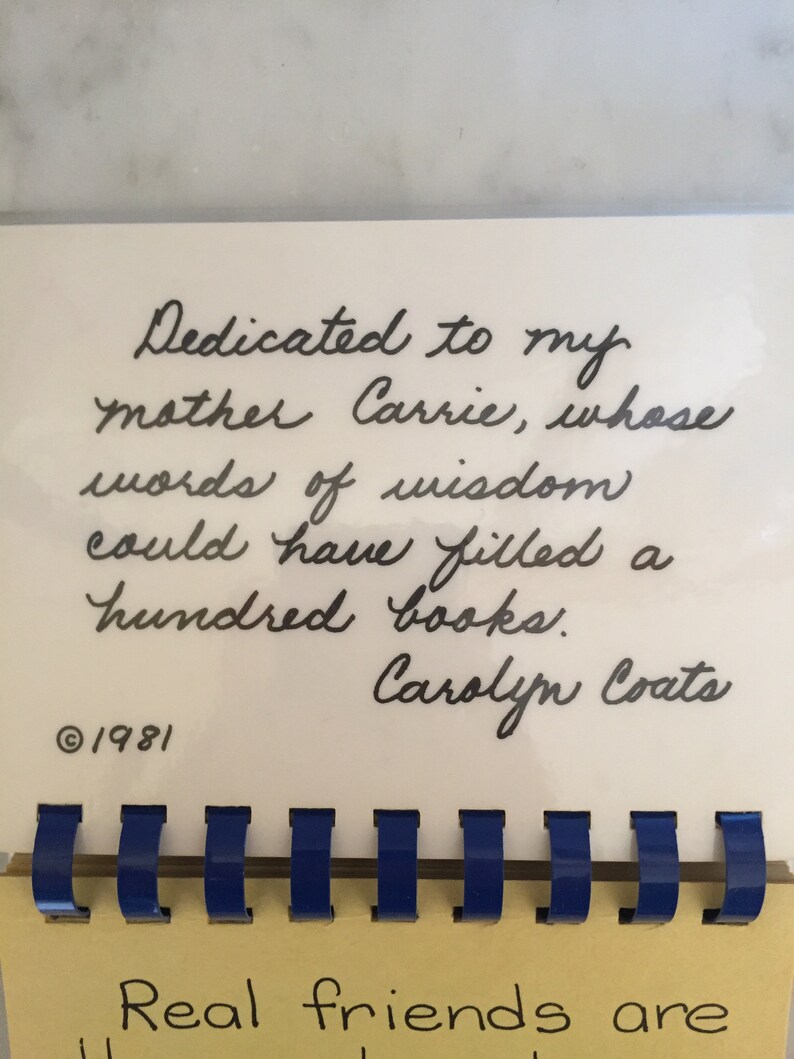 Dedicated to my
mother Carrie, whose
words of wisdom
could have filled a
hundred books.
Carolyn Coats
©1981
Real friends are